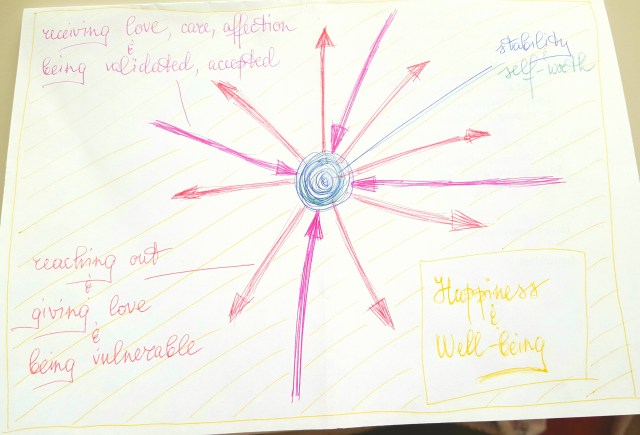 receiving love, care, affection
&
being validated, accepted
stability
self-worth
reaching out
&
giving love
&
being vulnerable
Happiness
&
Well-being